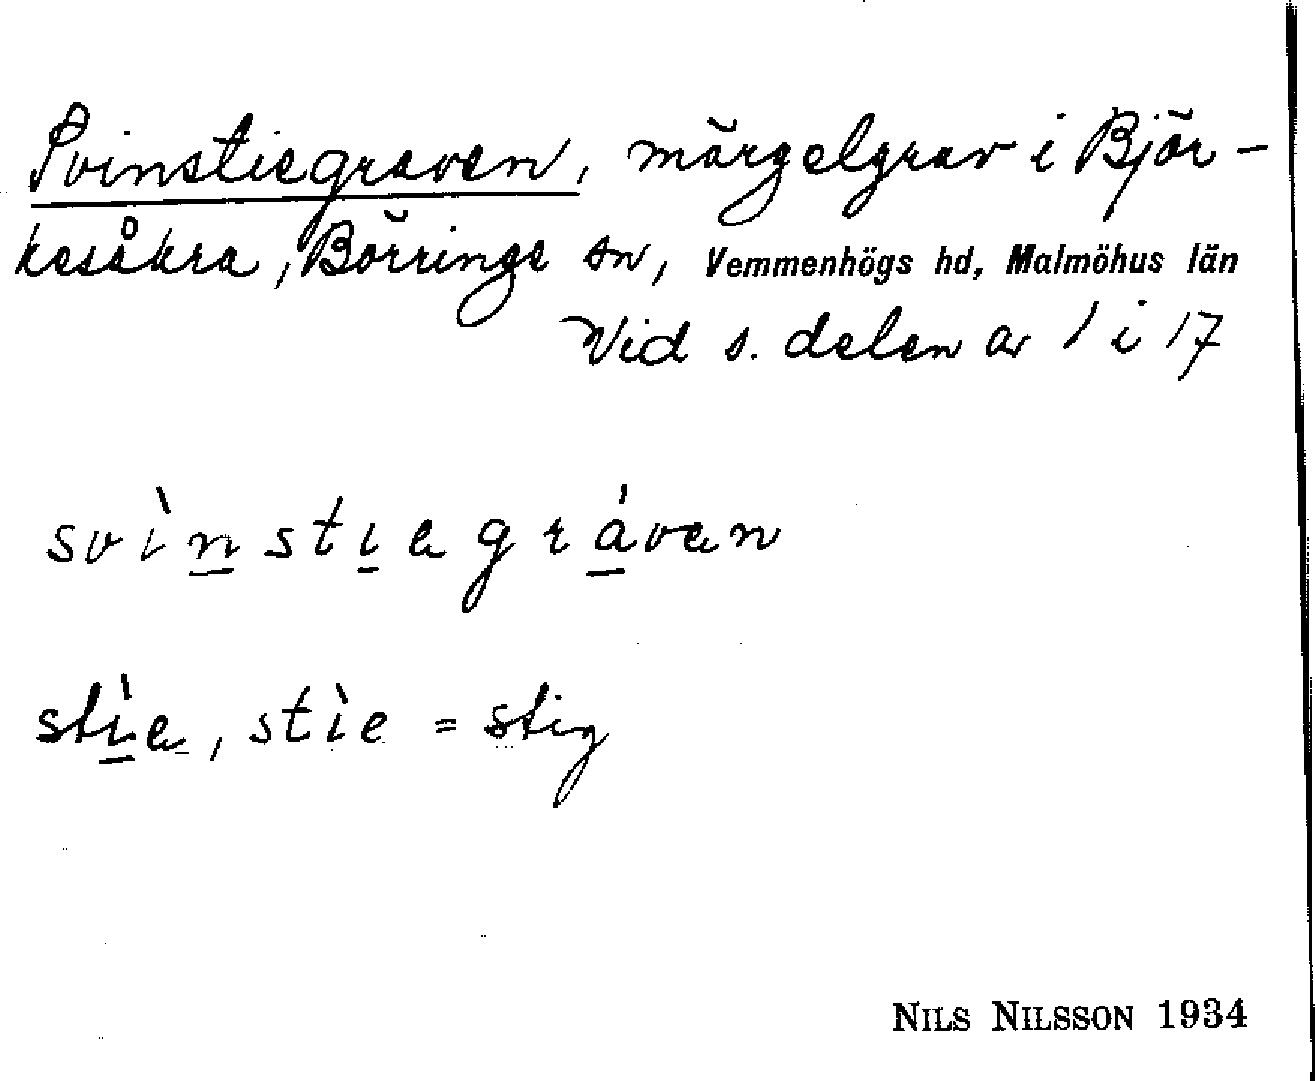 Svinstiegraven, märgelgrav i Björ-
kesåkra, Börringe sn, Vemmenhögs hd, Malmöhus län
Vid s. delen av 1 i 17
svìnstiegráven
stìe, stìe = stig
NILS NILSSON 1934